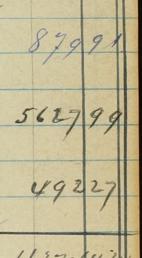 87991
562799
49227